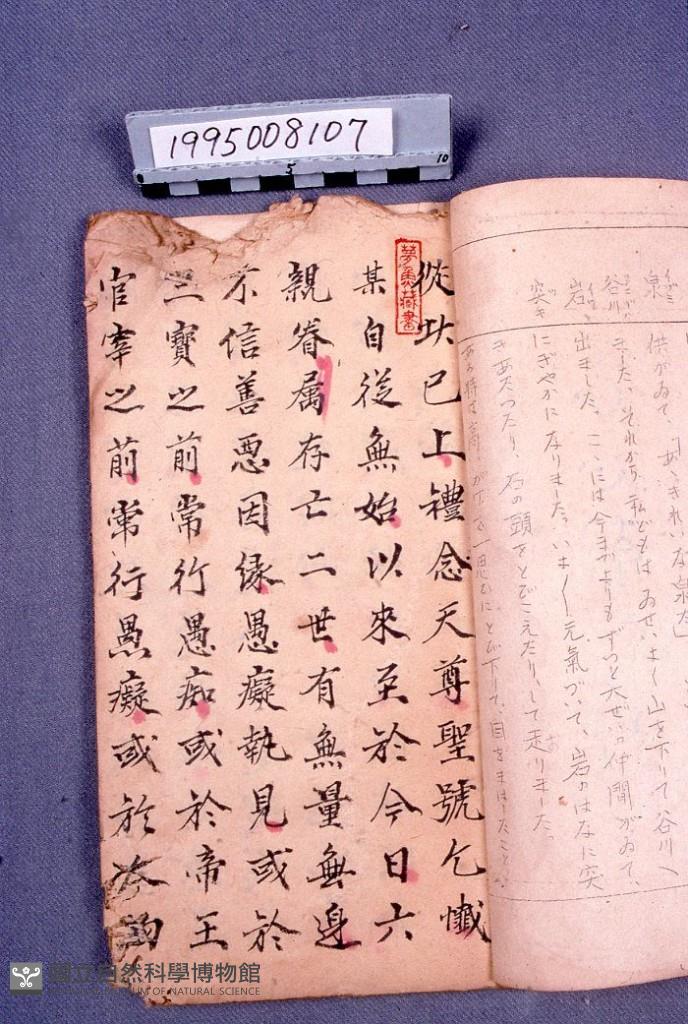 1995008107
5
10
從此已上禮念天尊聖號乞懺
某自從無始以來至於今日六
親眷属存亡二世有無量無邊
不信善惡因緣愚癡執見或於
三寶之前常行愚痴或於帝王
官宰之前常行愚癡或於
藏書
泉
供がゐて、「あゝきれいな泉だ」
谷川
ました。それから、私どもはゐせ、よく山を下りて谷川へ
岩
出ました。こゝには今までよりもずつと大ぜいの仲間がゐて、
突き
にぎやかになりました。いよ〳〵元氣づいて、岩のはなに突
きあたつたり、石の頭をとびこえたりして走りました。
一思ひにとび下りて、目をまはしたことが
國立自然科學博物館
MUSEUM OF NATURAL SCIENCE